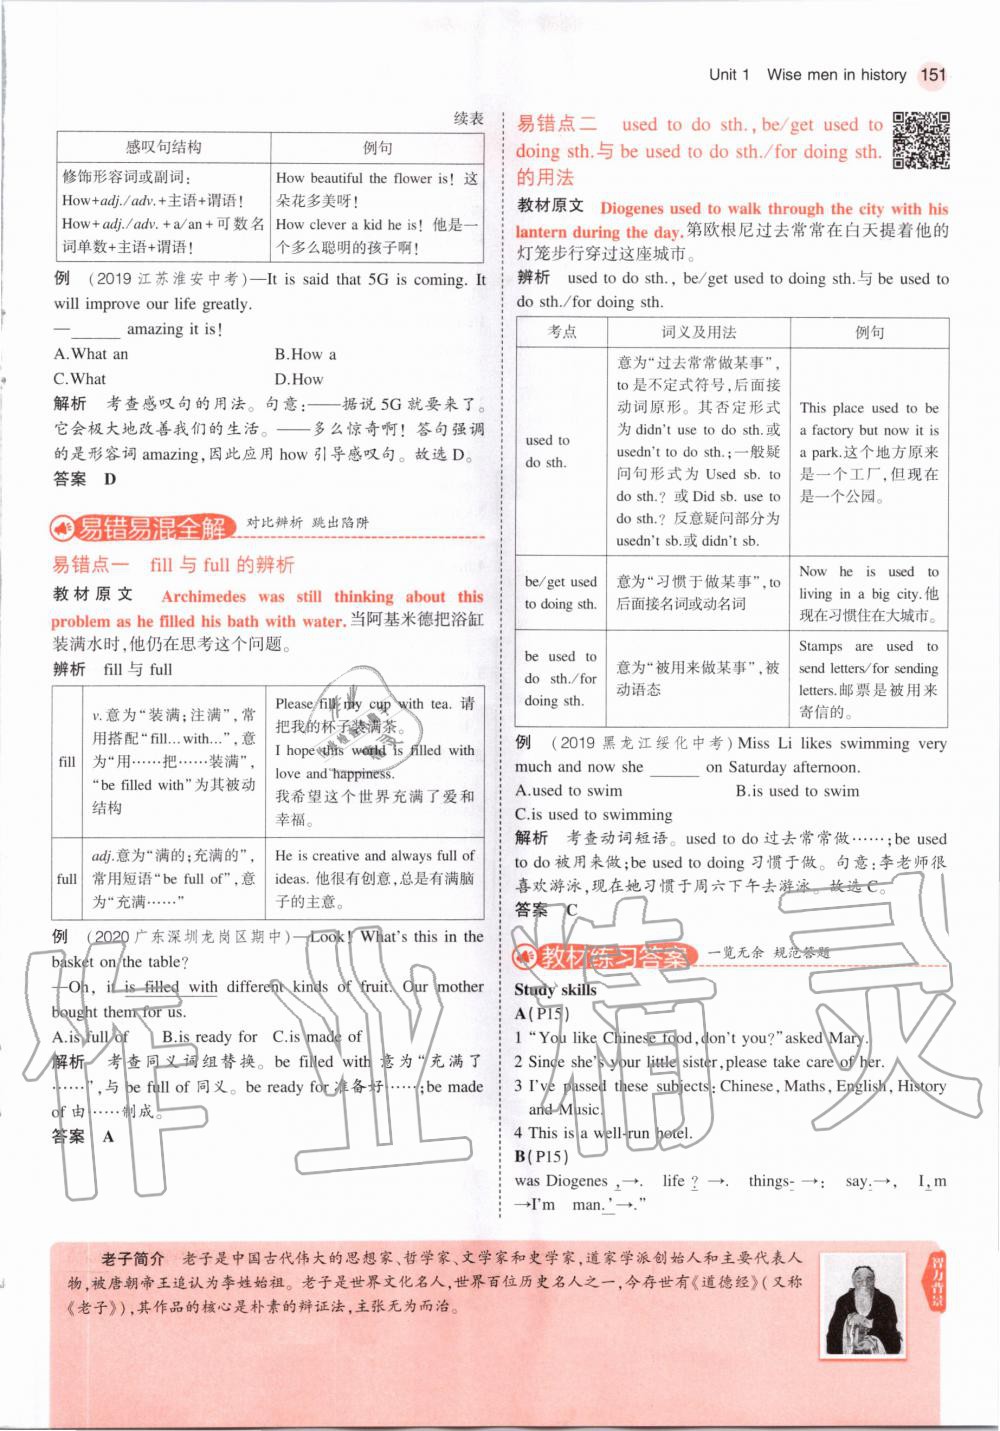 Unit 1 Wise men in history 151
续表
感叹句结构 例句
修饰形容词或副词:
How+adj./adv.+主语+谓语!
How+adj./adv.+a/an+可数名
词单数+主语+谓语!
How beautiful the flower is! 这
朵花多美呀!
How clever a kid he is! 他是一
个多么聪明的孩子啊!
例 (2019江苏淮安中考)—It is said that 5G is coming. It
will improve our life greatly.
—______ amazing it is!
A.What an B.How a
C.What D.How
解析 考查感叹句的用法。句意:——据说5G就要来了。
它会极大地改善我们的生活。——多么惊奇啊! 答句强调
的是形容词 amazing,因此应用 how 引导感叹句。故选D。
答案 D
易错易混全解 对比辨析 跳出陷阱
易错点一 fill 与 full 的辨析
教材原文 Archimedes was still thinking about this
problem as he filled his bath with water.当阿基米德把浴缸
装满水时,他仍在思考这个问题。
辨析 fill 与 full
fill
v.意为“装满;注满”,常
用搭配“fill...with...”,意
为“用……把……装满”,
“be filled with”为其被动
结构
Please fill my cup with tea. 请
把我的杯子装满茶。
I hope this world is filled with
love and happiness.
我希望这个世界充满了爱和
幸福。
full
adj.意为“满的;充满的”,
常用短语“be full of”,意
为“充满……”
He is creative and always full of
ideas. 他很有创意,总是有满脑
子的主意。
例 (2020广东深圳龙岗区期中)—Look! What's this in the
basket on the table?
—Oh, it is filled with different kinds of fruit. Our mother
bought them for us.
A.is full of B.is ready for C.is made of
解析 考查同义词组替换。be filled with 意为“充满了
……”,与 be full of 同义。be ready for 准备好……;be made
of 由……制成。
答案 A
易错点二 used to do sth., be/get used to
doing sth.与 be used to do sth./for doing sth.
的用法
教材原文 Diogenes used to walk through the city with his
lantern during the day.第欧根尼过去常常在白天提着他的
灯笼步行穿过这座城市。
辨析 used to do sth., be/get used to doing sth.与 be used to
do sth./for doing sth.
考点 词义及用法 例句
used to
do sth.
意为“过去常常做某事”,
to 是不定式符号,后面接
动词原形。其否定形式
为 didn't use to do sth.或
usedn't to do sth.;一般疑
问句形式为 Used sb. to
do sth.? 或 Did sb. use to
do sth.? 反意疑问部分为
usedn't sb.或 didn't sb.
This place used to be
a factory but now it is
a park.这个地方原来
是一个工厂,但现在
是一个公园。
be/get used
to doing sth.
意为“习惯于做某事”,to
后面接名词或动名词
Now he is used to
living in a big city.他
现在习惯住在大城市。
be used to
do sth./for
doing sth.
意为“被用来做某事”,被
动语态
Stamps are used to
send letters/for sending
letters.邮票是被用来
寄信的。
例 (2019黑龙江绥化中考)Miss Li likes swimming very
much and now she ______ on Saturday afternoon.
A.used to swim B.is used to swim
C.is used to swimming
解析 考查动词短语。used to do 过去常常做……;be used
to do 被用来做;be used to doing 习惯于做。句意:李老师很
喜欢游泳,现在她习惯于周六下午去游泳。故选C。
答案 C
教材练习答案 一览无余 规范答题
Study skills
A(P15)
1 “You like Chinese food,don't you?”asked Mary.
2 Since she's your little sister,please take care of her.
3 I've passed these subjects: Chinese, Maths, English, History
and Music.
4 This is a well-run hotel.
B(P15)
was Diogenes ,→. life ? →. things- →: say.→, I,m
→I'm man.'→.”
老子简介 老子是中国古代伟大的思想家、哲学家、文学家和史学家,道家学派创始人和主要代表人
物,被唐朝帝王追认为李姓始祖。老子是世界文化名人,世界百位历史名人之一,今存世有《道德经》(又称
《老子》),其作品的核心是朴素的辩证法,主张无为而治。
智力背景
作业精灵